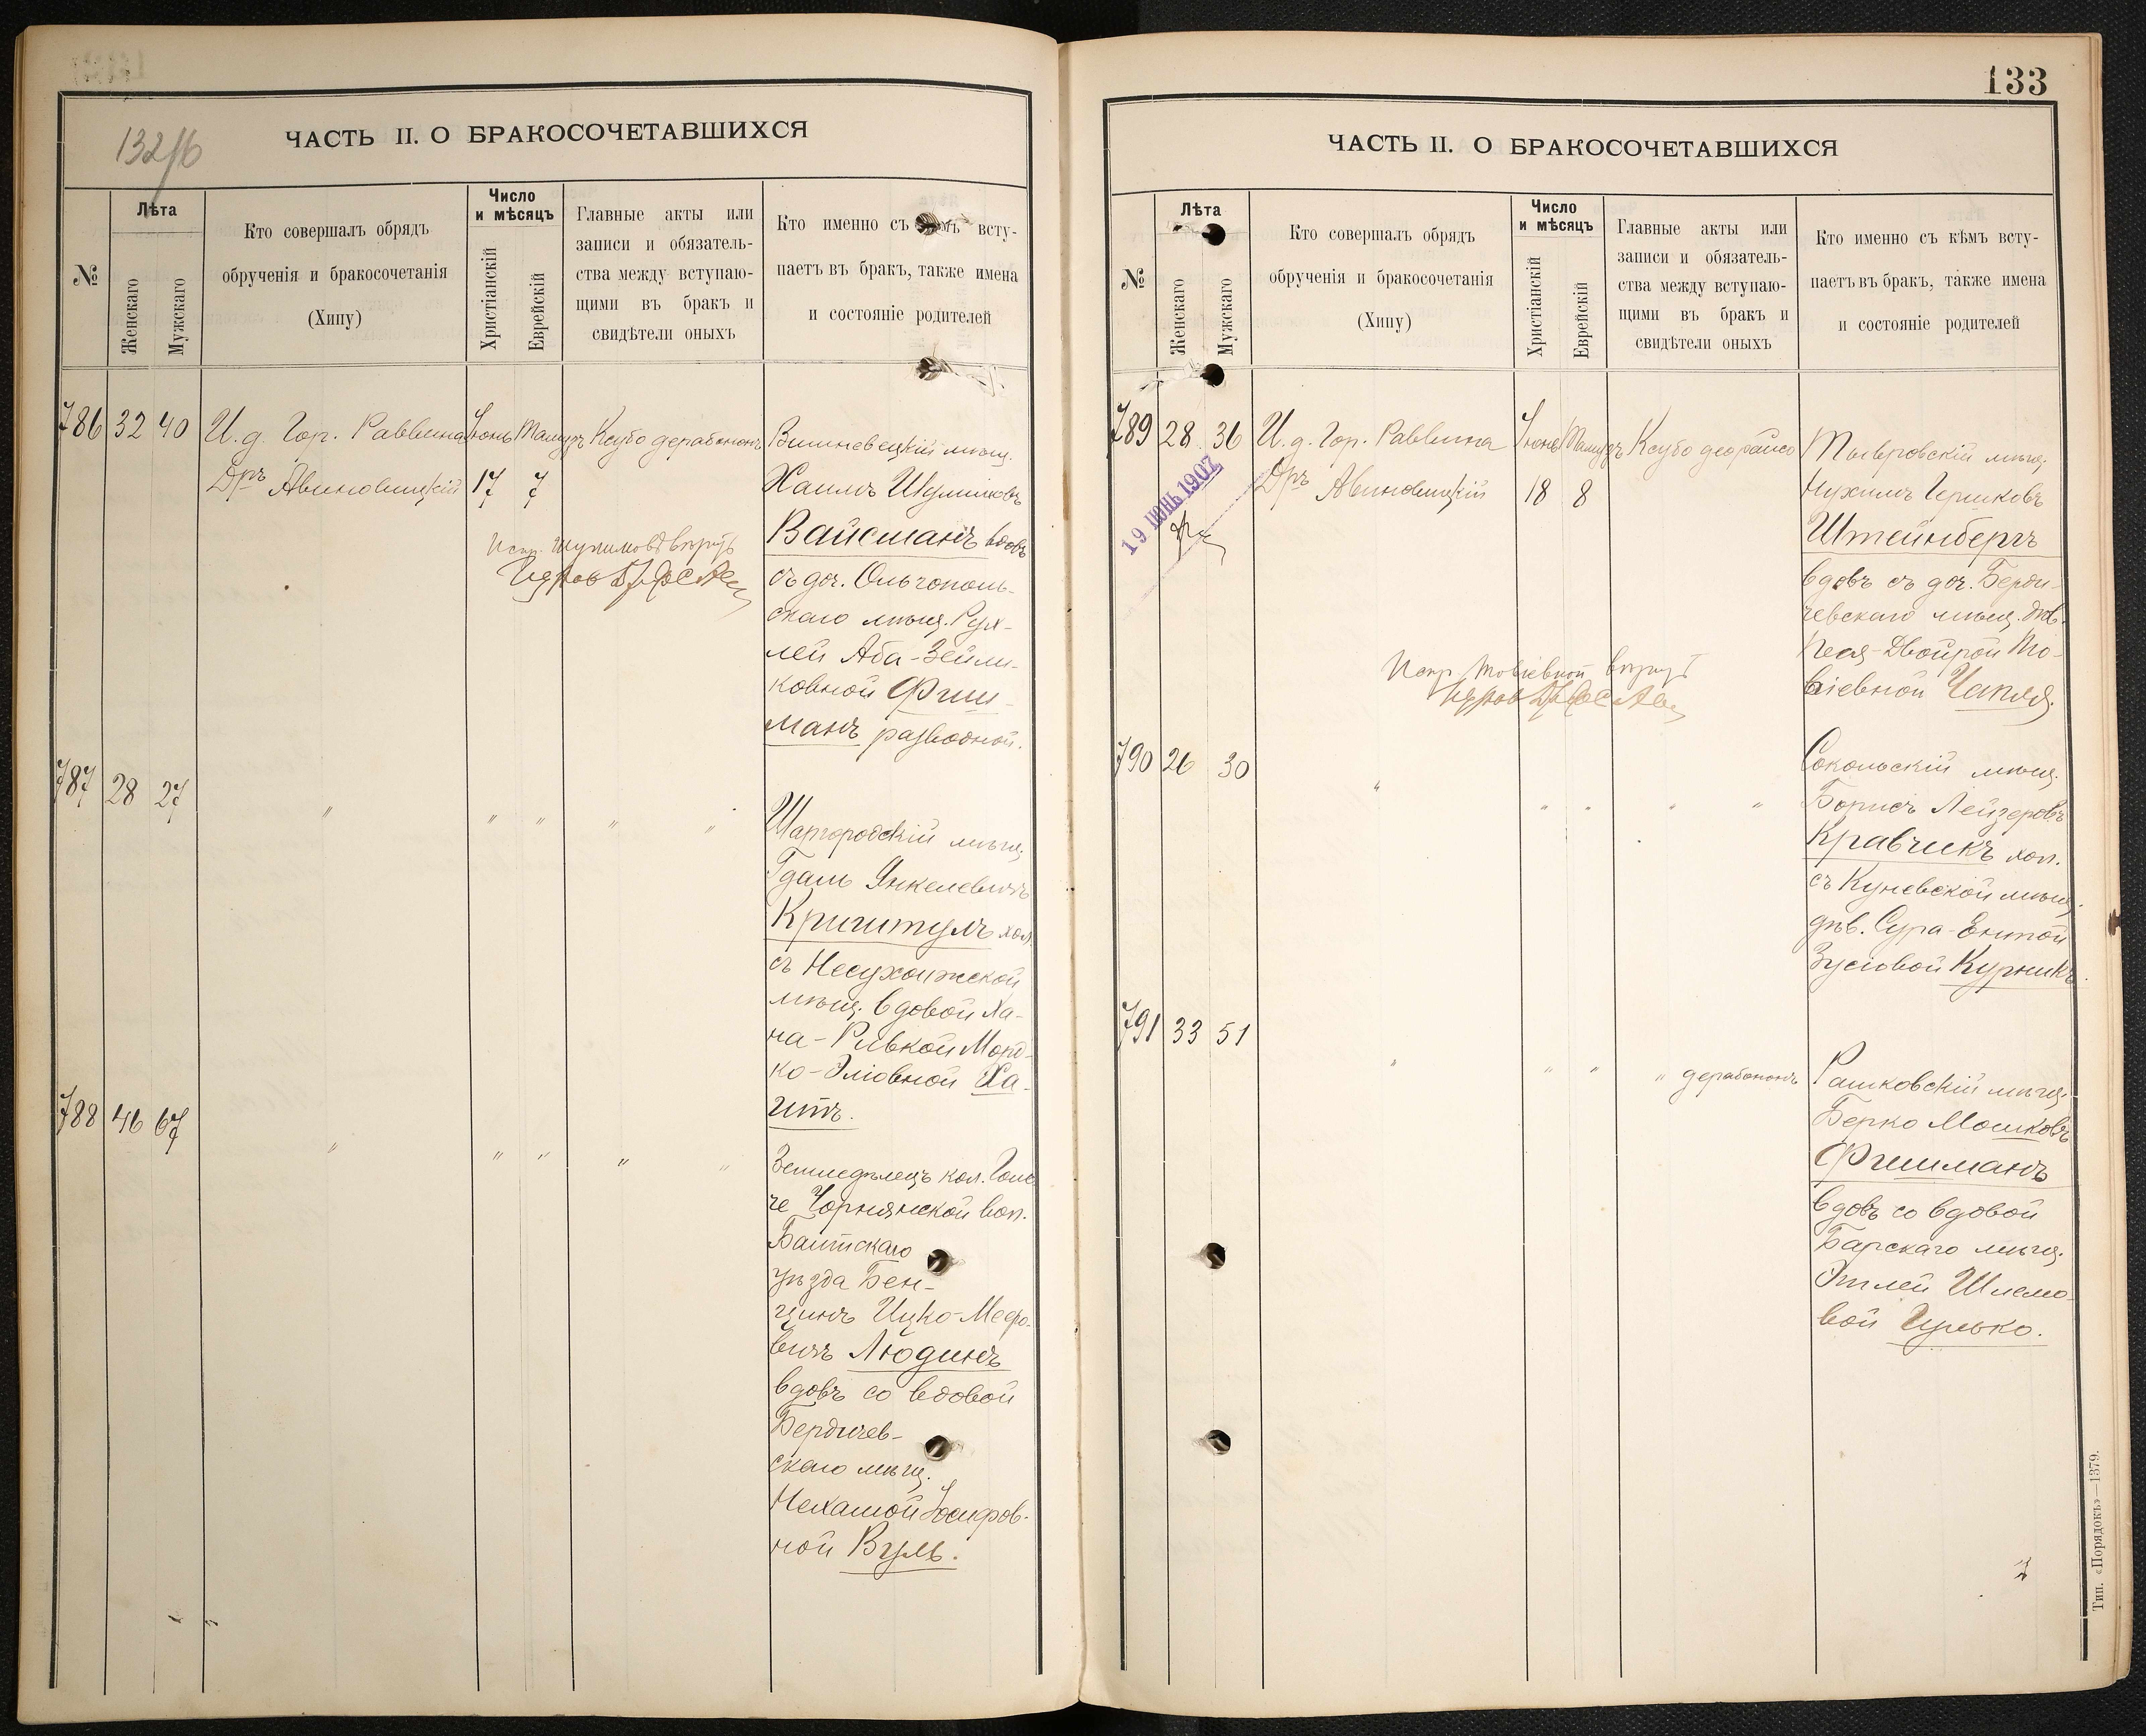 132/б
ЧАСТЬ II. О БРАКОСОЧЕТАВШИХСЯ
№
Лѣта
Женскаго
Мужскаго
Кто совершалъ обрядъ
обрученія и бракосочетанія
(Хипу)
Число
и мѣсяцъ
Христіанскій
Еврейскій
Главные акты или
записи и обязатель-
ства между вступаю-
щими въ бракъ и
свидѣтели оныхъ
Кто именно съ всту-
паетъ въ бракъ, также имена
и состояніе родителей
786 32 40 И. д. Гор. Раввина Іюнь Тамузъ Ксубо дерабононъ Вишневецкій мѣщ.
Дръ Авиновицкій 17 7 Хаимъ Шулимовъ
Вайсманъ вдовъ
съ доч. Ольгополь-
скаго мѣщ. Рух-
лей Аба-Зейли-
ковной Фиш-
манъ разводной.
Испр. Шулимовъ вѣрую
787 28 27 " " " " "
Шаргородскій мѣщ.
Гдаль Янкелевичъ
Криштулъ хол.
съ Несухоижской
мѣщ. вдовой Ха-
на-Ривкой Морд-
ко-Эліовной Ха-
гитъ.
788 46 67 " " " " "
Земледѣлецъ кол. Гон
че Чорнянской вол.
Балтскаго
уѣзда Бен-
ціонъ Ицко-Мееро-
вичъ Людинъ
вдовъ со вдовой
Бердичев-
скаго мѣщ.
Нехамой Іосифов-
ной Вуль.
133
ЧАСТЬ II. О БРАКОСОЧЕТАВШИХСЯ
№
Лѣта
Женскаго
Мужскаго
Кто совершалъ обрядъ
обрученія и бракосочетанія
(Хипу)
Число
и мѣсяцъ
Христіанскій
Еврейскій
Главные акты или
записи и обязатель-
ства между вступаю-
щими въ бракъ и
свидѣтели оныхъ
Кто именно съ кѣмъ всту-
паетъ въ бракъ, также имена
и состояніе родителей
789 28 36 И. д. Гор. Раввина Іюнь Тамузъ Ксубо деорайсо Тывровскій мѣщ.
Дръ Авиновицкій 18 8 Нухимъ Гершковъ
19 ІЮНЬ 1907
Штейнбергъ
вдовъ съ доч. Берди-
чевскаго мѣщ. дѣв.
Песя-Двойрой То-
віевной Чапля.
Испр. Товіевной вѣрую
790 26 30 " " " " "
Сокольскій мѣщ.
Борисъ Лейзеровъ
Кравчикъ хол.
съ Куневской мѣщ.
дѣв. Сура-Ентой
Зусіовой Курникъ.
791 33 51 " " " " дерабононъ
Рашковскій мѣщ.
Берко Мошковъ
Фишманъ
вдовъ со вдовой
Барскаго мѣщ.
Этлей Шлемо-
вой Гулько.
Тип. «Порядокъ»—1379.